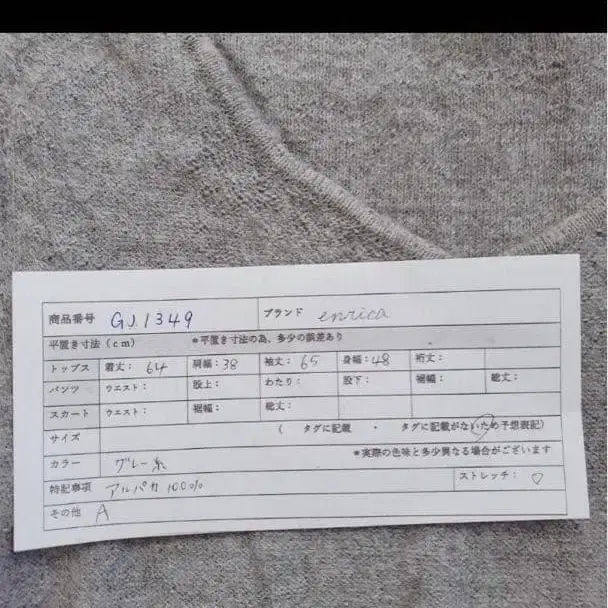 商品番号 GJ1349 ブランド enrica
平置き寸法（cm） *平置き寸法の為、多少の誤差あり
トップス 着丈：64 肩幅：38 袖丈：65 身幅：48 裄丈：
パンツ ウエスト： 股上： わたり： 股下： 裾幅： 総丈：
スカート ウエスト： 裾幅： 総丈：
サイズ （ タグに記載 ・ タグに記載がないため予想表記）
カラー グレー系 *実際の色味と多少異なる場合がございます
特記事項 アルパカ100% ストレッチ：○
その他 A